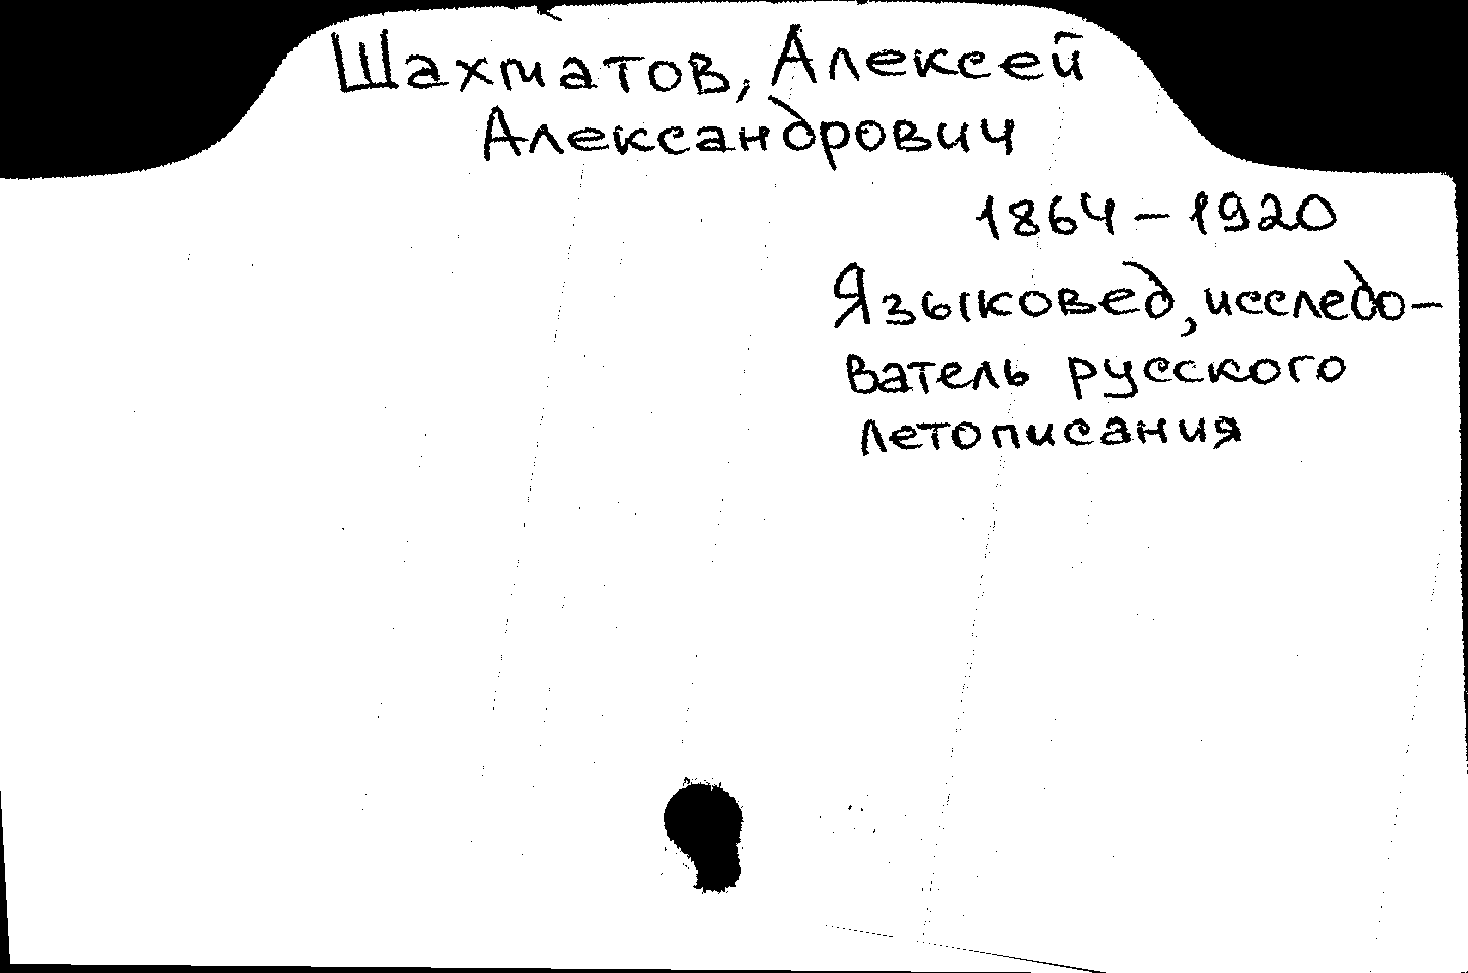 Шахматов, Алексей
Александрович
1864 – 1920
Языковед, исследо-
ватель русского
летописания